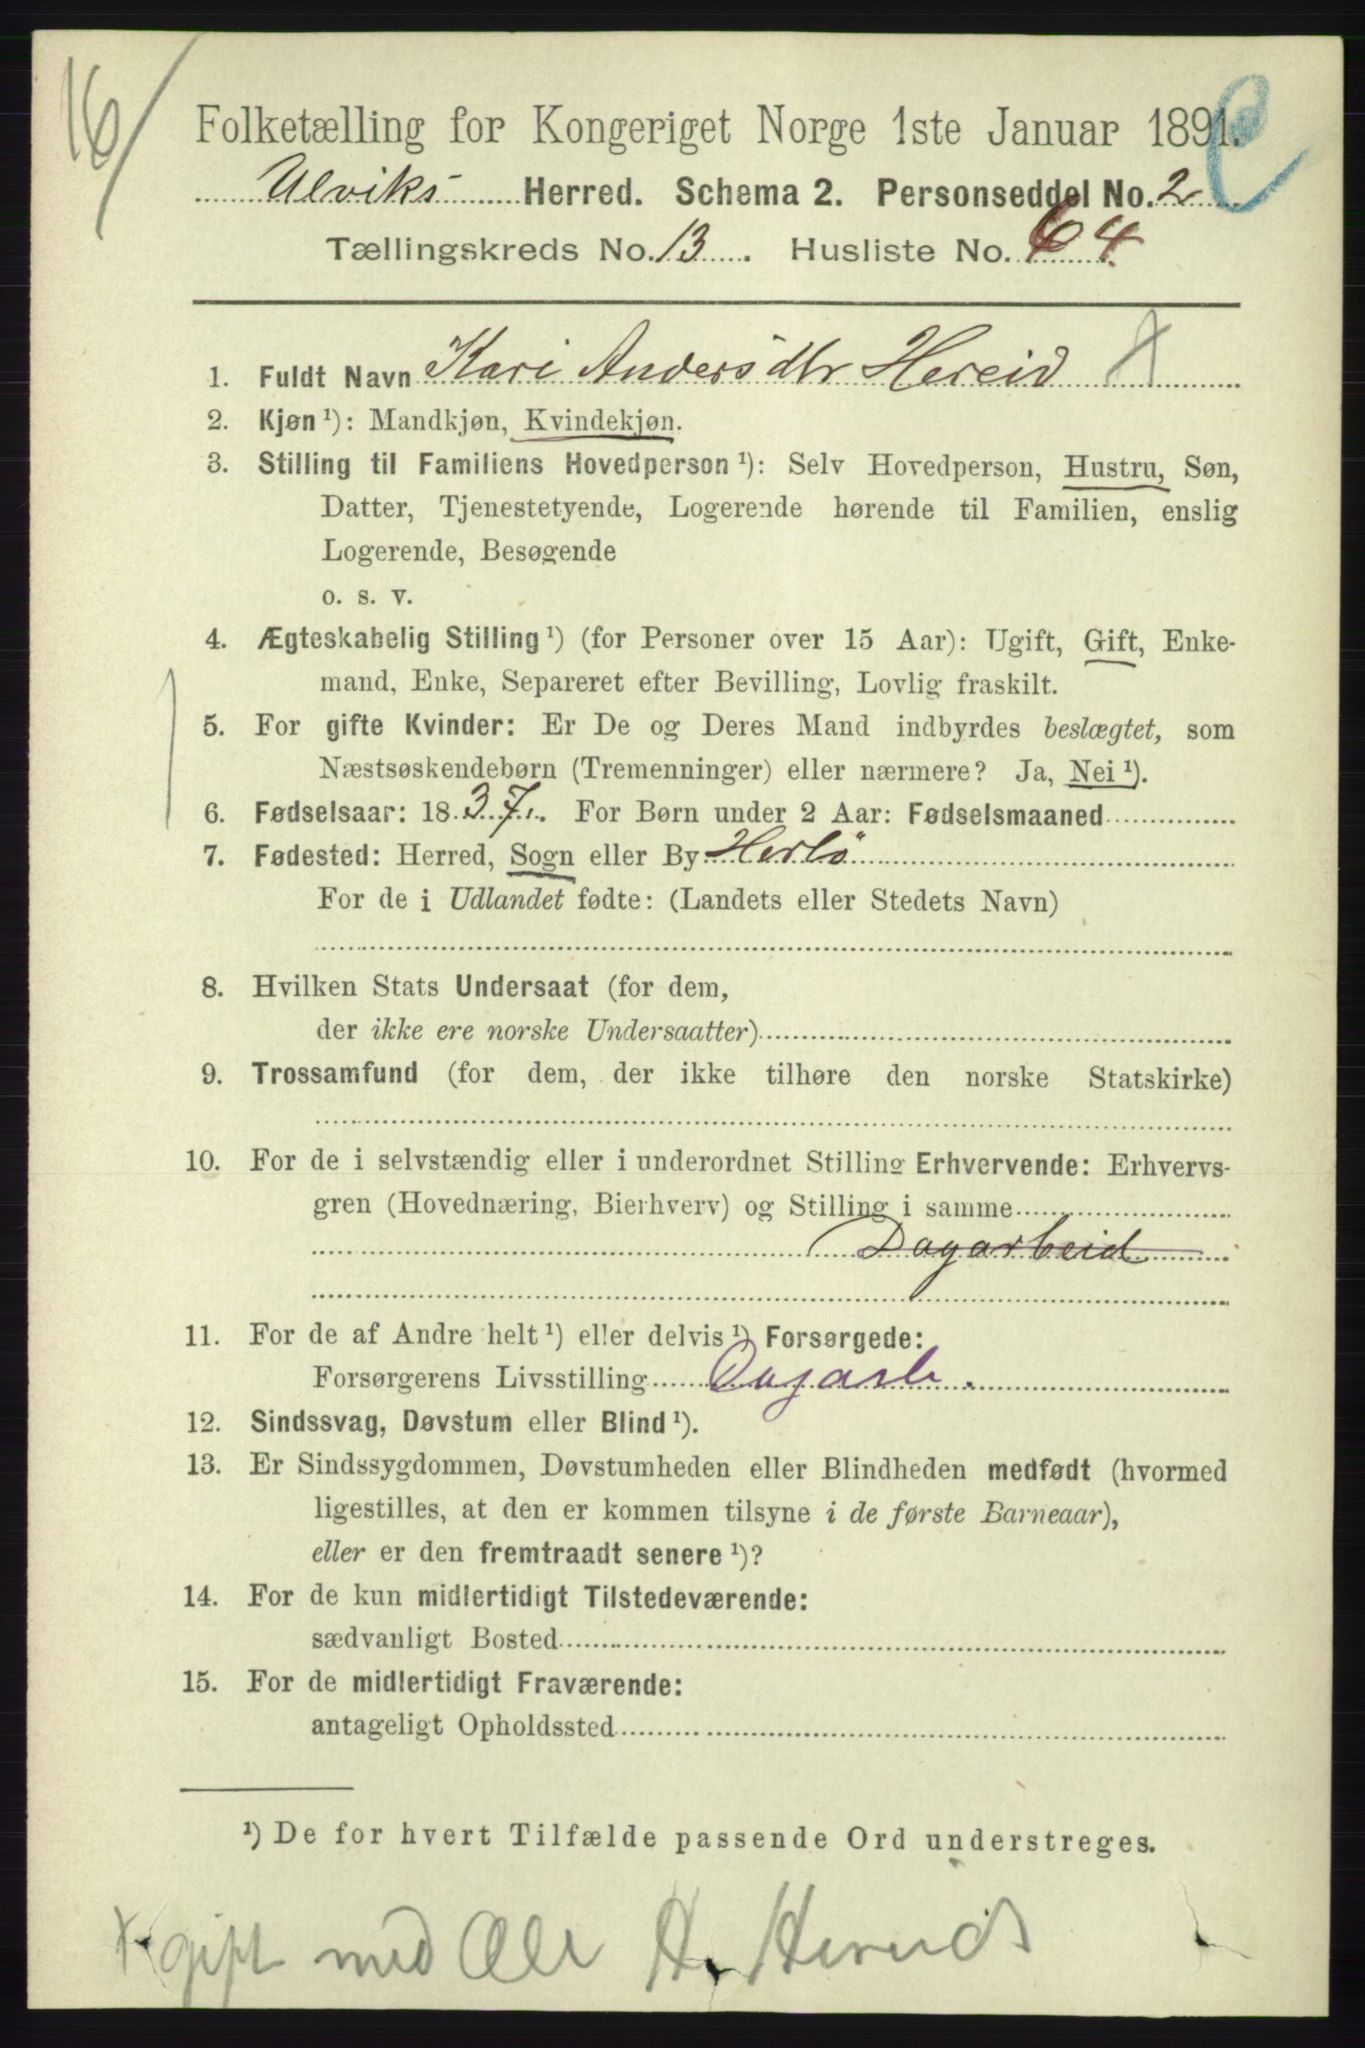 16
Folketælling for Kongeriget Norge 1ste Januar 1891.
Ulviks Herred. Schema 2. Personseddel No. 2
Tællingskreds No. 13. Husliste No. 64
1. Fuldt Navn Kari Andersdtr Hereid
2. Kjøn ¹): Mandkjøn, Kvindekjøn.
3. Stilling til Familiens Hovedperson ¹): Selv Hovedperson, Hustru, Søn,
Datter, Tjenestetyende, Logerende hørende til Familien, enslig
Logerende, Besøgende
o. s. v.
4. Ægteskabelig Stilling ¹) (for Personer over 15 Aar): Ugift, Gift, Enke-
mand, Enke, Separeret efter Bevilling, Lovlig fraskilt.
5. For gifte Kvinder: Er De og Deres Mand indbyrdes beslægtet, som
Næstsøskendebørn (Tremenninger) eller nærmere? Ja, Nei ¹).
6. Fødselsaar: 1837. For Børn under 2 Aar: Fødselsmaaned
7. Fødested: Herred, Sogn eller By Herlö
For de i Udlandet fødte: (Landets eller Stedets Navn)
8. Hvilken Stats Undersaat (for dem,
der ikke ere norske Undersaatter)
9. Trossamfund (for dem, der ikke tilhøre den norske Statskirke)
10. For de i selvstændig eller i underordnet Stilling Erhvervende: Erhvervs-
gren (Hovednæring, Bierhverv) og Stilling i samme
Dagarbeid
11. For de af Andre helt ¹) eller delvis ¹) Forsørgede:
Forsørgerens Livsstilling Dagarb.
12. Sindssvag, Døvstum eller Blind ¹).
13. Er Sindssygdommen, Døvstumheden eller Blindheden medfødt (hvormed
ligestilles, at den er kommen tilsyne i de første Barneaar),
eller er den fremtraadt senere ¹)?
14. For de kun midlertidigt Tilstedeværende:
sædvanligt Bosted
15. For de midlertidigt Fraværende:
antageligt Opholdssted
¹) De for hvert Tilfælde passende Ord understreges.
x gift med Ole H. Hereid